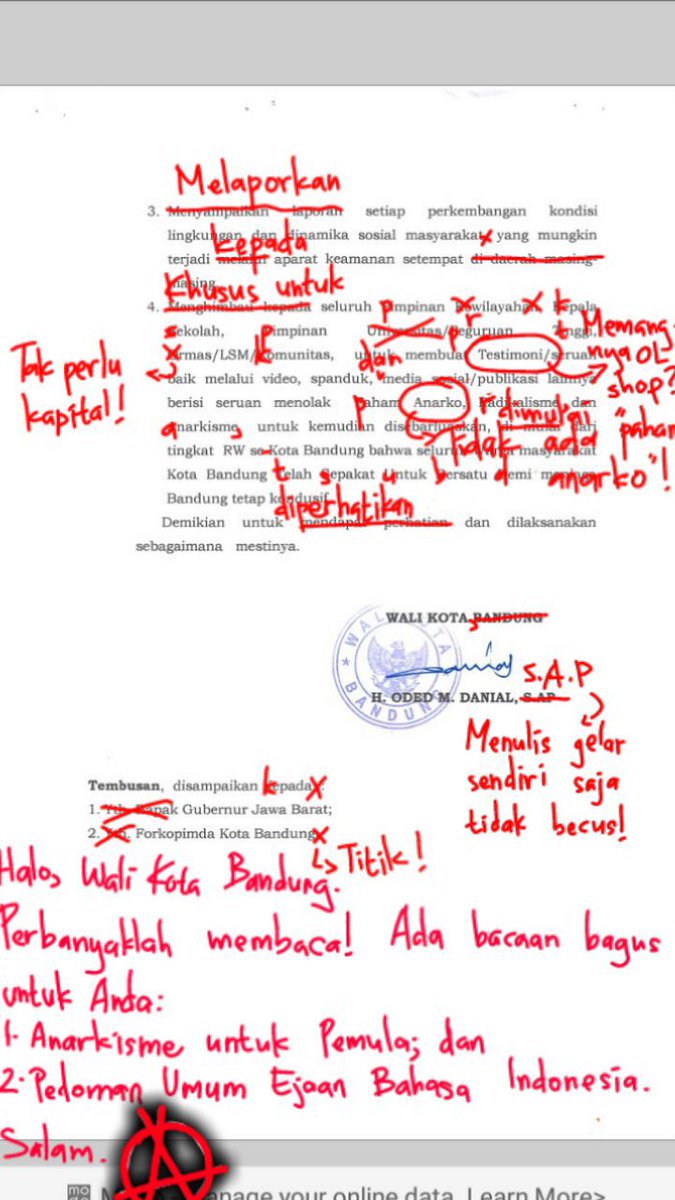 Melaporkan
3. Menyampaikan laporan setiap perkembangan kondisi
lingkungan dan dinamika sosial masyarakat x yang mungkin
kepada
terjadi melalui aparat keamanan setempat di daerah masing-
masing.
Khusus untuk
4. Menghimbau kepada seluruh pimpinan Kewilayahan, Kepala
Sekolah, Pimpinan Universitas/Perguruan Tinggi,
Ormas/LSM/Komunitas, untuk membuat Testimoni/seruan
dan
Memang-
nya OL
shop?
Tak perlu
kapital!
baik melalui video, spanduk, media sosial/publikasi lainnya
berisi seruan menolak Paham Anarko, Radikalisme dan
dimulai
Anarkisme, untuk kemudian disebarluaskan, di mulai dari
Tidak ada "paham
anarko"!
tingkat RW se-Kota Bandung bahwa seluruh masyarakat
Kota Bandung Telah Sepakat Untuk bersatu demi
Bandung tetap kondusif.
diperhatikan
Demikian untuk mendapat perhatian dan dilaksanakan
sebagaimana mestinya.
WALI KOTA BANDUNG
WALI KOTA
BANDUNG
H. ODED M. DANIAL, S.AP
S.A.P
Menulis gelar
sendiri saja
tidak becus!
Tembusan, disampaikan kepada x
1. Yth. Bapak Gubernur Jawa Barat;
2. Forkopimda Kota Bandung x
Titik!
Halo, Wali Kota Bandung.
Perbanyaklah membaca! Ada bacaan bagus
untuk Anda:
1. Anarkisme untuk Pemula; dan
2. Pedoman Umum Ejaan Bahasa Indonesia.
Salam.
A
nage your online data. Learn More>